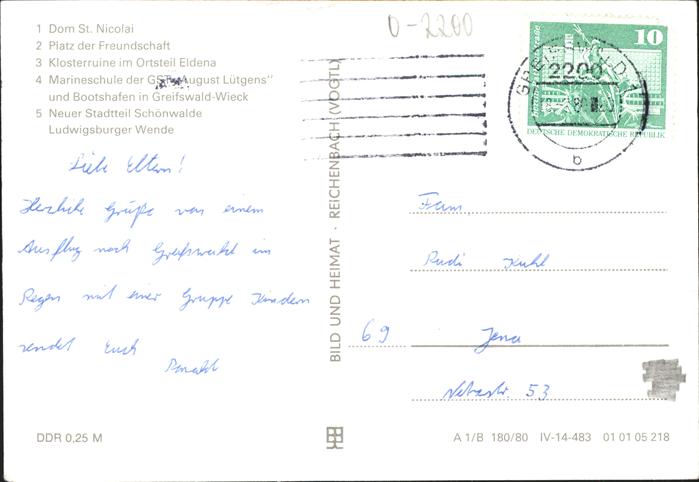 1 Dom St. Nicolai
2 Platz der Freundschaft
3 Klosterruine im Ortsteil Eldena
4 Marineschule der GST „August Lütgens“
und Bootshafen in Greifswald-Wieck
5 Neuer Stadtteil Schönwalde
Ludwigsburger Wende
0-2200
10
2200
DEUTSCHE DEMOKRATISCHE REPUBLIK
b
Liebe Eltern!
Herzliche Grüße von einem
Ausflug nach Greifswald im
Regen mit einer Gruppe Kindern
sendet Euch
Ronald
BILD UND HEIMAT · REICHENBACH (VOGTL)
Fam.
Rudi Kuhl
69 Jena
53
DDR 0,25 M
A 1/B 180/80 IV-14-483 01 01 05 218